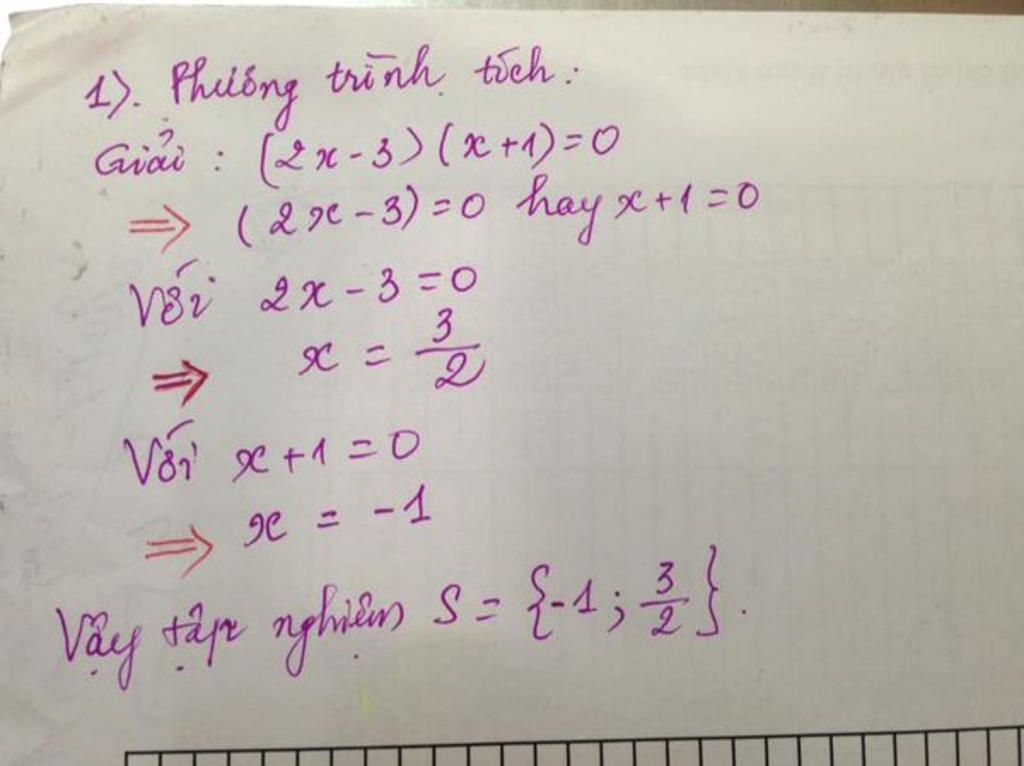 1). Phương trình tích:
Giải : (2x-3)(x+1)=0
⇒ (2x-3)=0 hay x+1=0
Với 2x-3=0
⇒ x = 3/2
Với x+1=0
⇒ x = -1
Vậy tập nghiệm S = {-1; 3/2}.